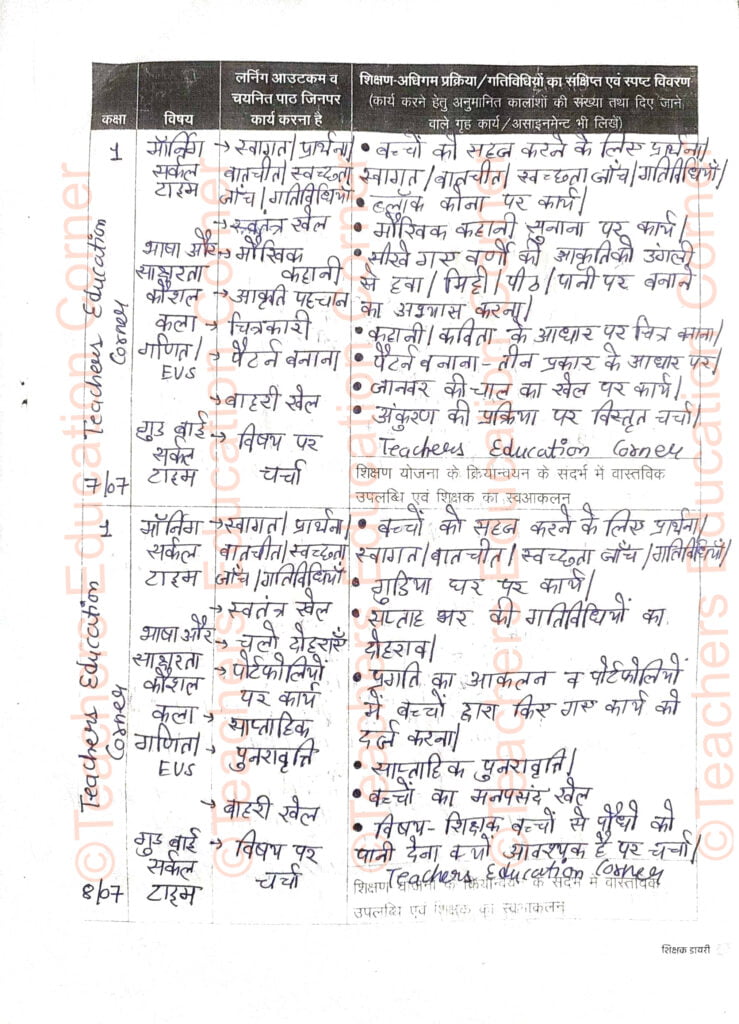 लर्निंग आउटकम व
चयनित पाठ जिनपर
कार्य करना है
शिक्षण-अधिगम प्रक्रिया/गतिविधियों का संक्षिप्त एवं स्पष्ट विवरण
(कार्य करने हेतु अनुमानित कालांशों की संख्या तथा दिए जाने
वाले गृह कार्य/असाइनमेन्ट भी लिखें)
कक्षा
विषय
1
मॉर्निंग
सर्कल
टाइम
→ स्वागत/प्रार्थना/
बातचीत/स्वच्छता
जाँच/गतिविधियाँ
→ स्वतंत्र खेल
भाषा और
साक्षरता
कौशल
→ मौखिक
कहानी
→ आकृति पहचान
कला → चित्रकारी
गणित/
EVS
→ पैटर्न बनाना
→ बाहरी खेल
गुड बाई
सर्कल
टाइम
→ विषय पर
चर्चा
7/07
Teachers Education
Corner
• बच्चों को सहज करने के लिए प्रार्थना/
स्वागत/बातचीत/स्वच्छता जाँच/गतिविधियाँ/
• ब्लॉक कोना पर कार्य/
• मौखिक कहानी सुनाना पर कार्य/
• सीखे गए वर्णों की आकृति को उंगली
से हवा/मिट्टी/पीठ/पानी पर बनाने
का अभ्यास करना/
• कहानी/कविता के आधार पर चित्र बनाना/
• पैटर्न बनाना - तीन प्रकार के आधार पर/
• जानवर की चाल का खेल पर कार्य/
• अंकुरण की प्रक्रिया पर विस्तृत चर्चा/
Teachers Education Corner
शिक्षण योजना के क्रियान्वयन के संदर्भ में वास्तविक
उपलब्धि एवं शिक्षक का स्वआकलन
1
मॉर्निंग
सर्कल
टाइम
→ स्वागत/प्रार्थना/
बातचीत/स्वच्छता
जाँच/गतिविधियाँ
→ स्वतंत्र खेल
भाषा और
साक्षरता
कौशल
→ चलो दोहराएँ
→ पोर्टफोलियों
पर कार्य
कला → साप्ताहिक
पुनरावृत्ति
गणित/
EVS
→ बाहरी खेल
गुड बाई
सर्कल
टाइम
→ विषय पर
चर्चा
8/07
Teachers Education
Corner
• बच्चों को सहज करने के लिए प्रार्थना/
स्वागत/बातचीत/स्वच्छता जाँच/गतिविधियाँ/
• गुडिया घर पर कार्य/
• सप्ताह भर की गतिविधियों का
दोहराव/
• प्रगति का आकलन व पोर्टफोलियों
में बच्चों द्वारा किए गए कार्य को
दर्ज करना/
• साप्ताहिक पुनरावृत्ति/
• बच्चों का मनपसंद खेल
• विषय - शिक्षक बच्चों से पौधों को
पानी देना क्यों आवश्यक है पर चर्चा/
Teachers Education Corner
शिक्षण योजना के क्रियान्वयन के संदर्भ में वास्तविक
उपलब्धि एवं शिक्षक का स्वआकलन
शिक्षक डायरी
©Teachers Education Corner
©Teachers Education Corner
©Teachers Education Corner
©Teachers Education Corner